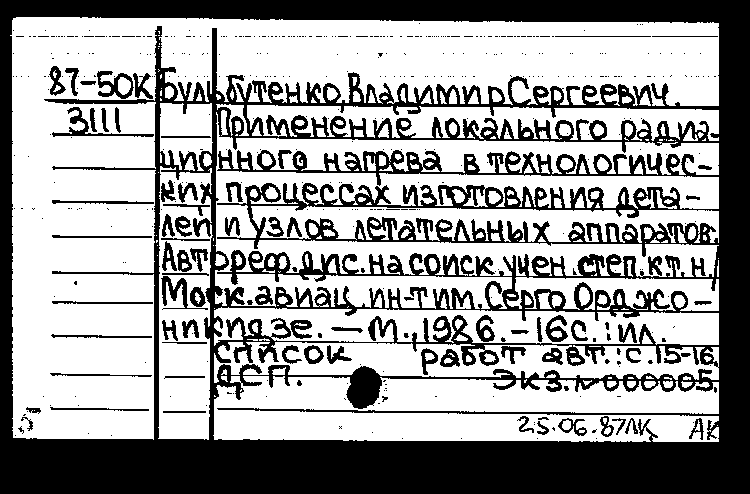 87-50К Бульбутенко, Владимир Сергеевич.
3111 Применение локального радиа-
ционного нагрева в технологичес-
ких процессах изготовления дета-
лей и узлов летательных аппаратов.
Автореф. дис. на соиск. учен. степ. к.т.н./
Моск. авиац. ин-т им. Серго Орджо-
никидзе. — М., 1986. - 16с. : ил.
Список работ авт.: с. 15-16.
ДСП. Экз. №000005.
5 25.06.87 АК